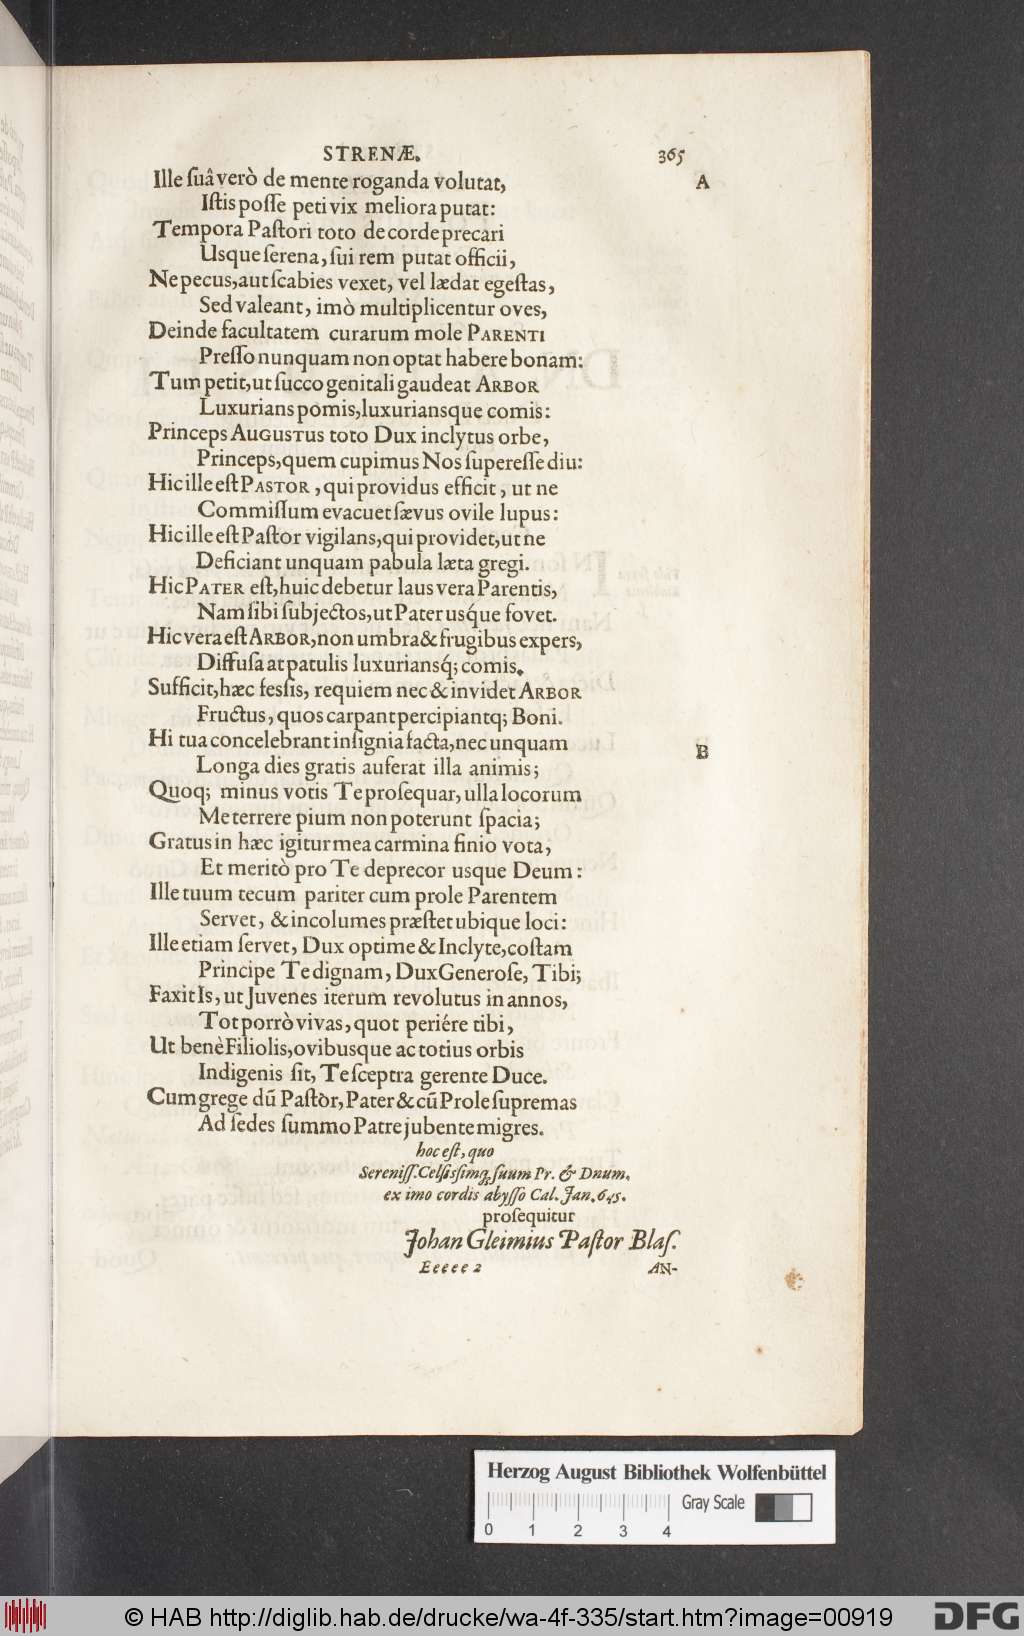 STRENÆ. 365
Ille ſuâ verò de mente roganda volutat, A
Iſtis poſſe peti vix meliora putat:
Tempora Paſtori toto de corde precari
Usque ſerena, ſui rem putat officii,
Ne pecus, aut ſcabies vexet, vel lædat egeſtas,
Sed valeant, imò multiplicentur oves,
Deinde facultatem curarum mole PARENTI
Preſſo nunquam non optat habere bonam:
Tum petit, ut ſucco genitali gaudeat ARBOR
Luxurians pomis, luxuriansque comis:
Princeps AUGUSTUS toto Dux inclytus orbe,
Princeps, quem cupimus Nos ſupereſſe diu:
Hic ille eſt PASTOR, qui providus efficit, ut ne
Commiſſum evacuet ſævus ovile lupus:
Hic ille eſt Paſtor vigilans, qui providet, ut ne
Deficiant unquam pabula læta gregi.
Hic PATER eſt, huic debetur laus vera Parentis,
Nam ſibi ſubjectos, ut Pater usq́ue fovet.
Hic vera eſt ARBOR, non umbra & frugibus expers,
Diffuſa at patulis luxuriansq́; comis.
Sufficit, hæc feſſis, requiem nec & invidet ARBOR
Fructus, quos carpant percipiantq; Boni.
Hi tua concelebrant inſignia facta, nec unquam
B
Longa dies gratis auferat illa animis;
Quoq; minus votis Te proſequar, ulla locorum
Me terrere pium non poterunt ſpacia;
Gratus in hæc igitur mea carmina finio vota,
Et meritò pro Te deprecor usque Deum:
Ille tuum tecum pariter cum prole Parentem
Servet, & incolumes præſtet ubique loci:
Ille etiam ſervet, Dux optime & Inclyte, coſtam
Principe Te dignam, Dux Generoſe, Tibi;
Faxit Is, ut Juvenes iterum revolutus in annos,
Tot porrò vivas, quot periére tibi,
Ut benè Filiolis, ovibusque ac totius orbis
Indigenis ſit, Te ſceptra gerente Duce.
Cum grege dũ Paſtòr, Pater & cũ Prole ſupremas
Ad ſedes ſummo Patre jubente migres.
hoc eſt, quo
Sereniſſ. Celſisſimq; ſuum Pr. & Dnum.
ex imo cordis abyſſo Cal. Jan. 645.
proſequitur
Johan Gleimius Paſtor Blaſ.
Eeeee 2 AN-
Herzog August Bibliothek Wolfenbüttel
Gray Scale
0 1 2 3 4
© HAB http://diglib.hab.de/drucke/wa-4f-335/start.htm?image=00919 DFG